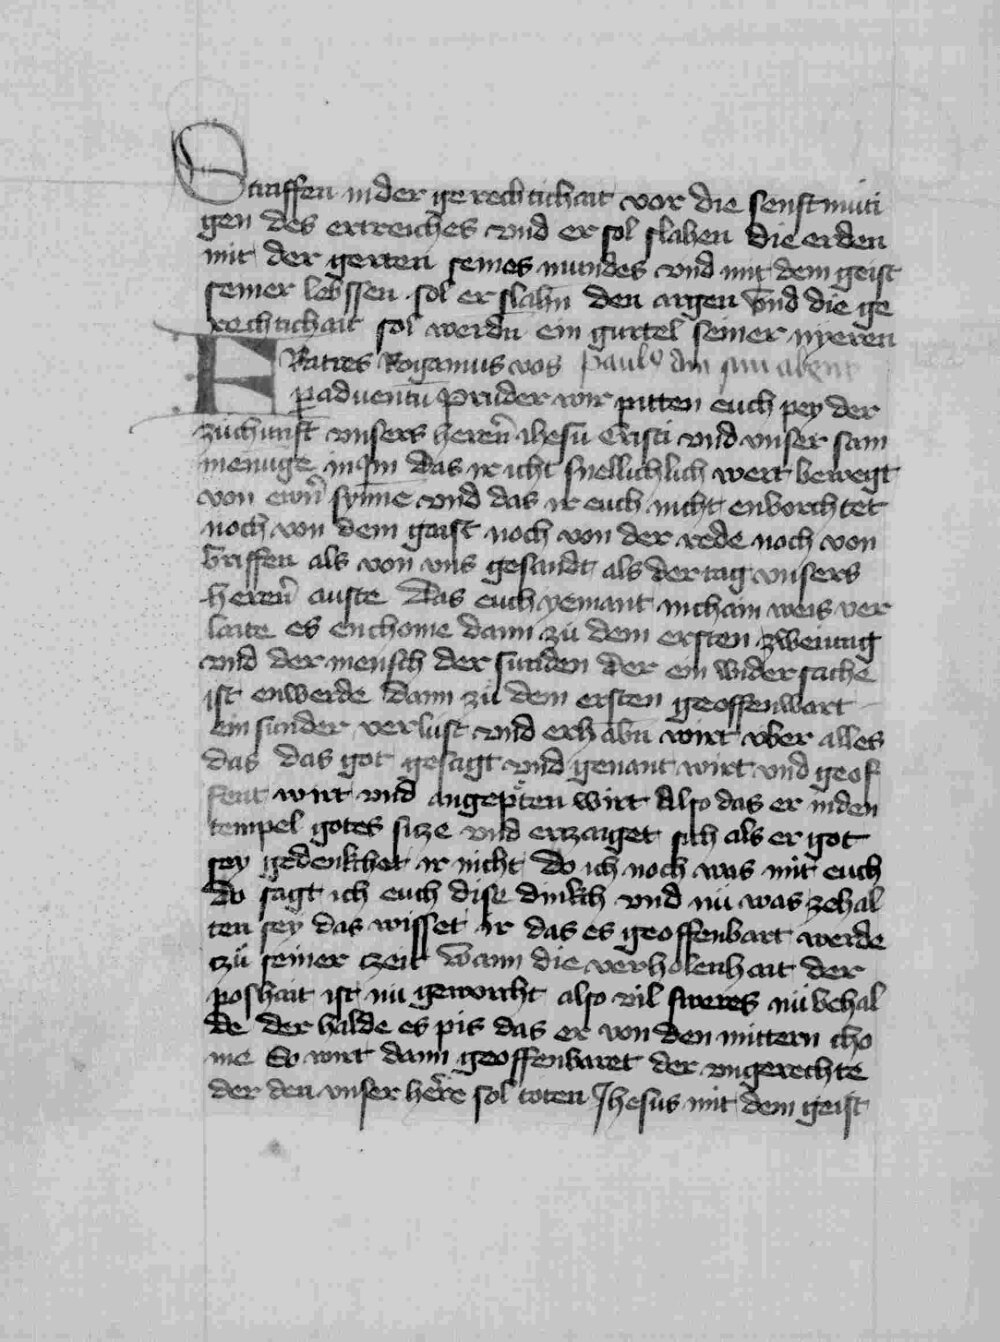 Straffen in der gerechtichait vor die senftmuti
gen des ertreiches vnd er sol slahen die erden
mit der gerten seines mundes vnd mit dem geist
seiner lebssen sol er slahn den argen vnd die ge
rechtichait sol werdn ein gurtel seiner nyeren
FRatres Rogamus vos Paul9 An
p aduentū Pruder wir pitten euch pey der
zuchunft vnsers heren̄ ihesu Cristi vnd vnser sam
menuge in das ir icht snellichlich wert bewegt
von ewrn̄ synne vnd das ir euch nicht enborchtet
noch von dem geist noch von der rede noch von
briffen als von vns gesandt als der tag vnsers
heren̄ auste Das euch yemant nichain weis ver
laite es enchome dann zu dem ersten zweiung
vnd der mensch der sunden der ein widersache
ist enwerde dann zu dem ersten geoffenwart
ein sunder verlust vnd erhabn wirt vber alles
das das got gesagt vnd genant wirt vnd geof
fent wirt vnd angepeten wirt Also das er inden
tempel gotes sicze vnd erczaiget sich als er got
sey gedenkchet ir nicht do ich noch was mit euch
do sagt ich euch dise dinkch vnd nu was zehal
ten sey das wisset ir das es geoffenbart werde
czu seiner czeit Wann die verholenhait der
poshait ist nu geworcht also vil nu behal
de der halde es pis das er von den mittern cho
me So wirt dann geoffenbaret der vngerechte
der den vnser here sol toten Jhesus mit dem geist